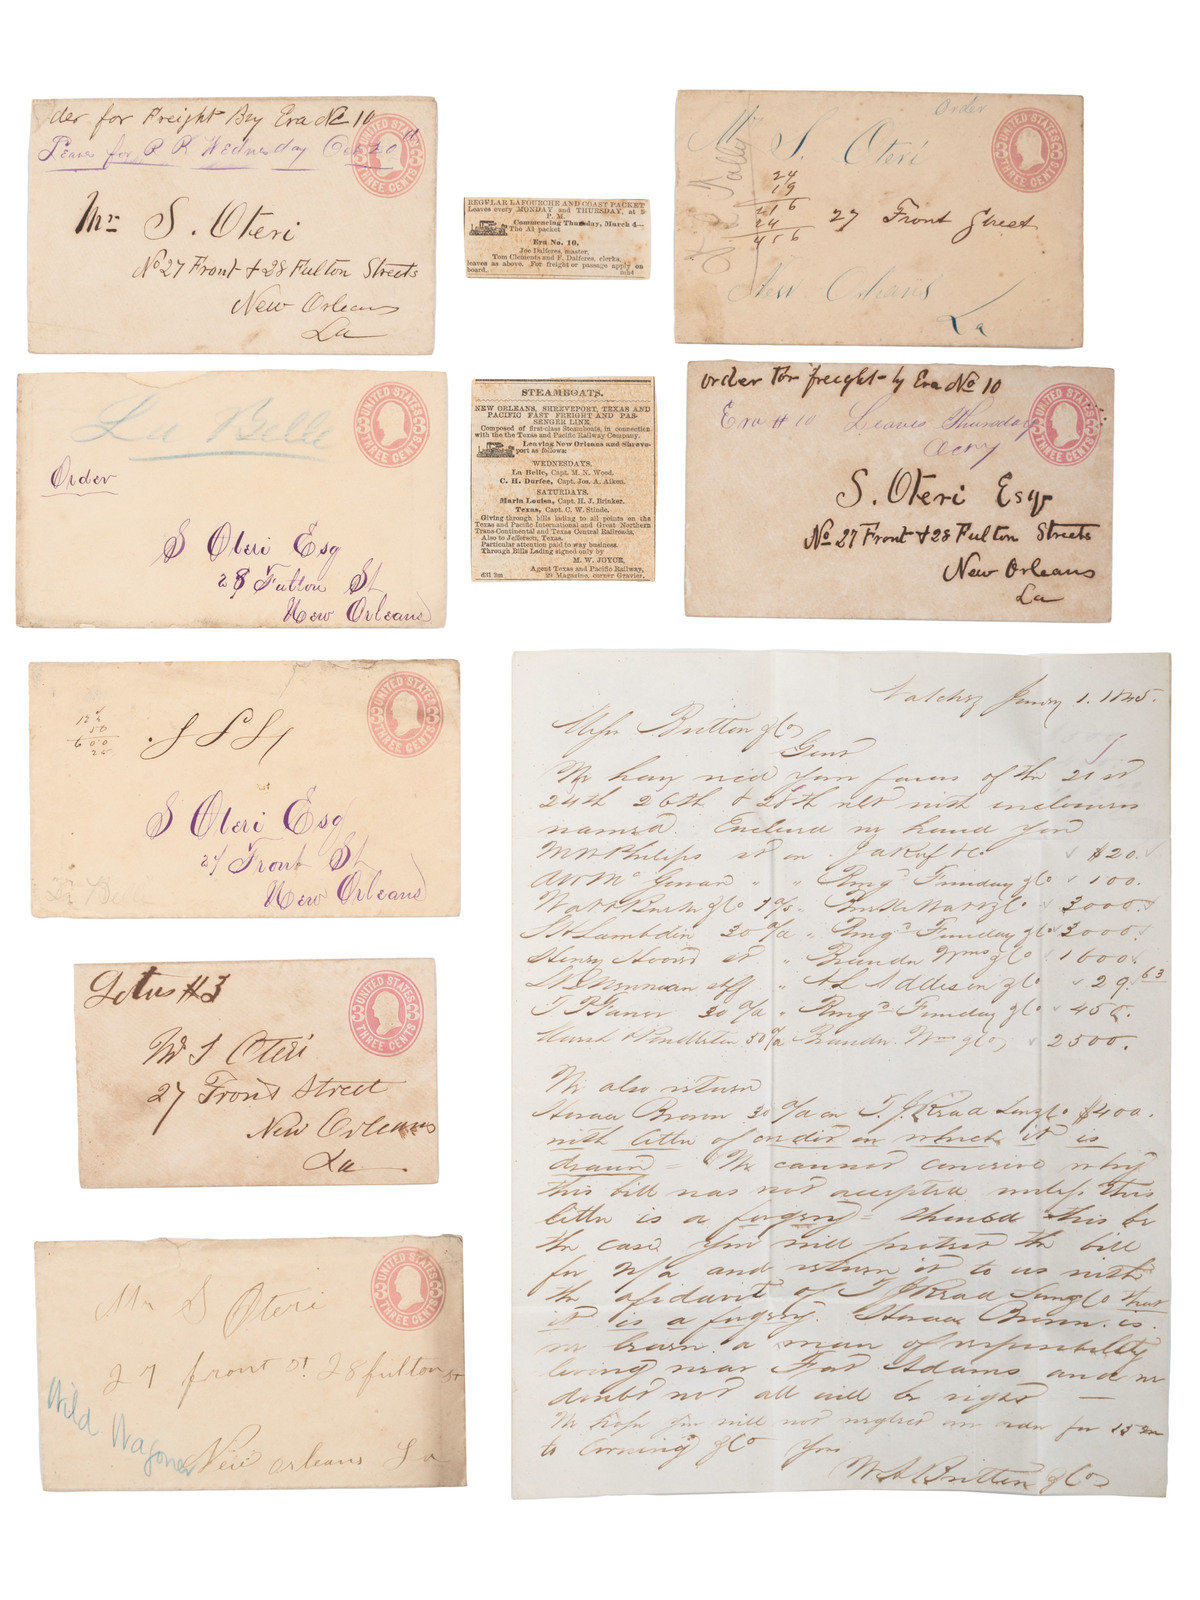 der for Freight By Era No 10
Leaves for R R Wednesday Oct 20
UNITED STATES
THREE CENTS
Mr S. Oteri
No 27 Front & 28 Fulton Streets
New Orleans
La
REGULAR LAFOURCHE AND COAST PACKET
Leaves every MONDAY and THURSDAY, at 5
P. M.
Commencing Thursday, March 4—
The A1 packet
Era No. 10,
Joe Dalferes, master,
Tom Clements and F. Dalferes, clerks,
leaves as above. For freight or passage apply on
board.
Order
UNITED STATES
THREE CENTS
Mr S. Oteri
24
19
216
24
456
27 Front Street
New Orleans
La
La Belle
UNITED STATES
THREE CENTS
Order
S Oteri Esq
28 Fulton St
New Orleans
STEAMBOATS.
NEW ORLEANS, SHREVEPORT, TEXAS AND
PACIFIC FAST FREIGHT AND PAS-
SENGER LINE,
Composed of first-class Steamboats, in connection
with the the Texas and Pacific Railway Company.
Leaving New Orleans and Shreve-
port as follows:
WEDNESDAYS.
La Belle, Capt. M. N. Wood.
C. H. Durfee, Capt. Jos. A. Aiken.
SATURDAYS.
Maria Louisa, Capt. H. J. Brinker.
Texas, Capt. C. W. Stinde.
Giving through bills lading to all points on the
Texas and Pacific International and Great Northern
Trans-Continental and Texas Central Railroads,
Also to Jefferson, Texas.
Particular attention paid to way business.
Through Bills Lading signed only by
M. W. JOYCE,
Agent Texas and Pacific Railway,
d31 3m 29 Magazine, corner Gravier.
order for freight by Era No 10
Era # 10 Leaves Thursday
UNITED STATES
THREE CENTS
S. Oteri Esqr
No 27 Front & 28 Fulton Streets
New Orleans
La
UNITED STATES
THREE CENTS
S Oteri Esq
27 Front St
New Orleans
Lotus #3
UNITED STATES
THREE CENTS
Mr S Oteri
27 Front Street
New Orleans
La
UNITED STATES
THREE CENTS
Mr S Oteri
27 front st 28 fulton st
Wild Wagoner
New orleans La
Natchez Jany 1. 1845.
Mess Britton & Co
Gent
We have recd your favors of the 21st
24th 26th & 28th with inclosures
named. Enclosed we hand you
$20.
100.
3000
3000
1600
29.63
2500.
We also return
Horace Brown 30 $400.
with letter of credit on which it is
drawn = We cannot conceive why
this bill was not accepted unless this
letter is a forgery = should this be
the case you will protest the bill
for and return it to us with
the afidavit of that
it is a forgery. Horace Brown is
we learn a man of responsibility
living near Fort Adams and we
doubt not all will be right —
We hope you will not neglect our
to Corning & Co Yours
W A Britton & Co